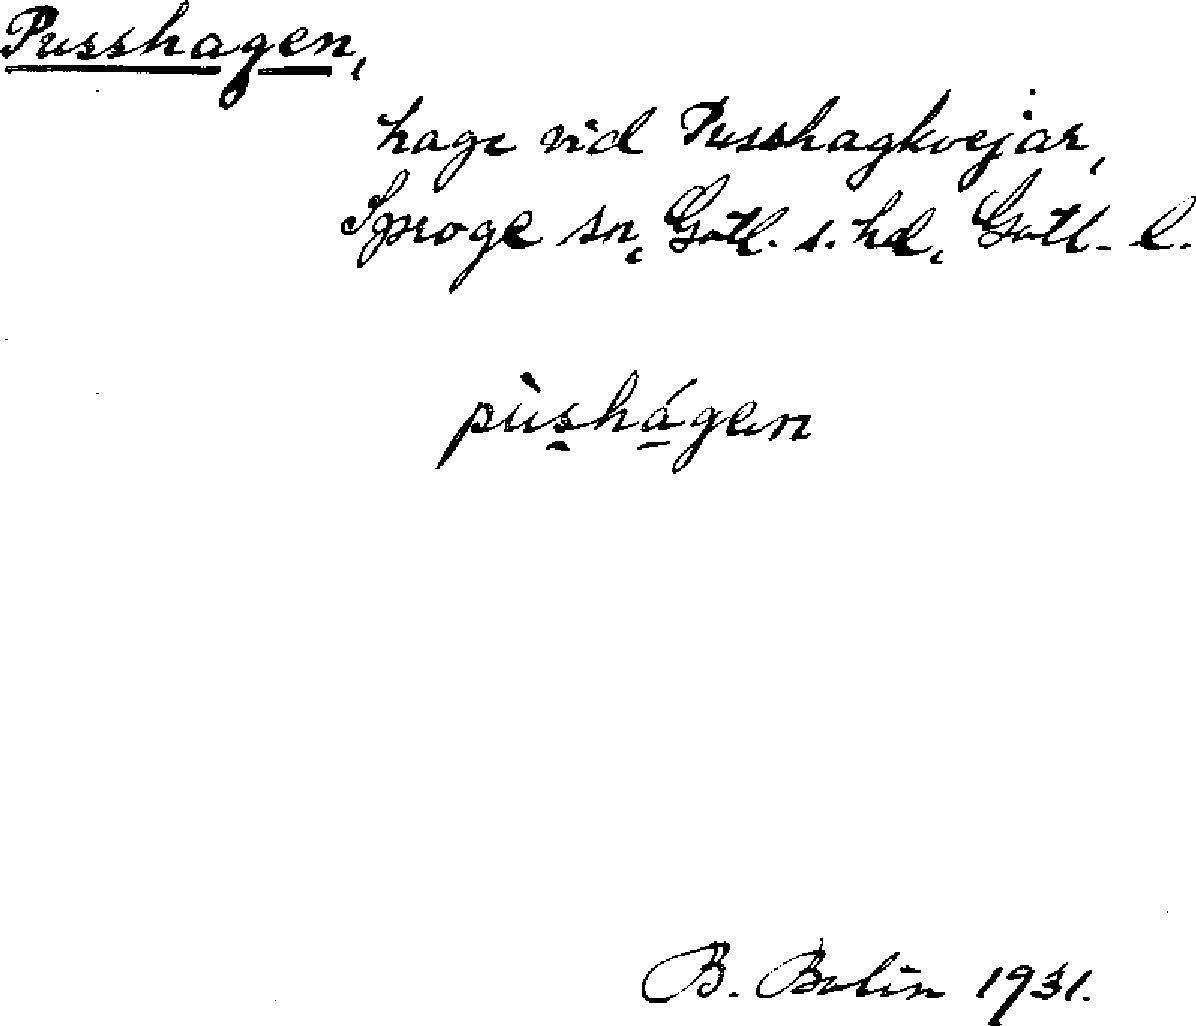 Pusshagen,
hage vid Pusshagkvejar,
Sproge sn, Gotl. s. hd, Gotl. l.
pùs̱há̱gen
B. Bolin 1931.